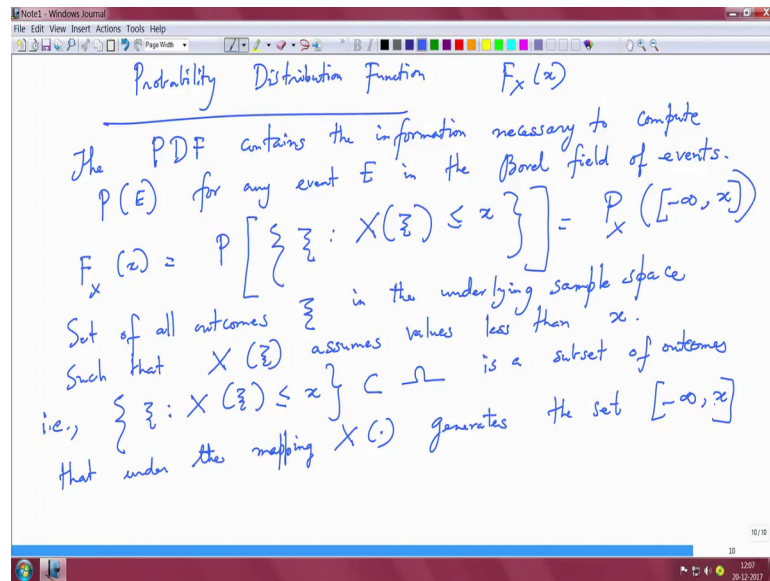 Note1 - Windows Journal
File Edit View Insert Actions Tools Help
Page Width
Probability Distribution Function F_X(x)
The PDF contains the information necessary to compute
P(E) for any event E in the Borel field of events.
F_X(x) = P[{ξ : X(ξ) ≤ x}] = P_X([-∞, x])
Set of all outcomes ξ in the underlying sample space
Such that X(ξ) assumes values less than x.
i.e., {ξ : X(ξ) ≤ x} ⊂ Ω is a subset of outcomes
that under the mapping X(·) generates the set [-∞, x]
10/10
10
12:07
20-12-2017